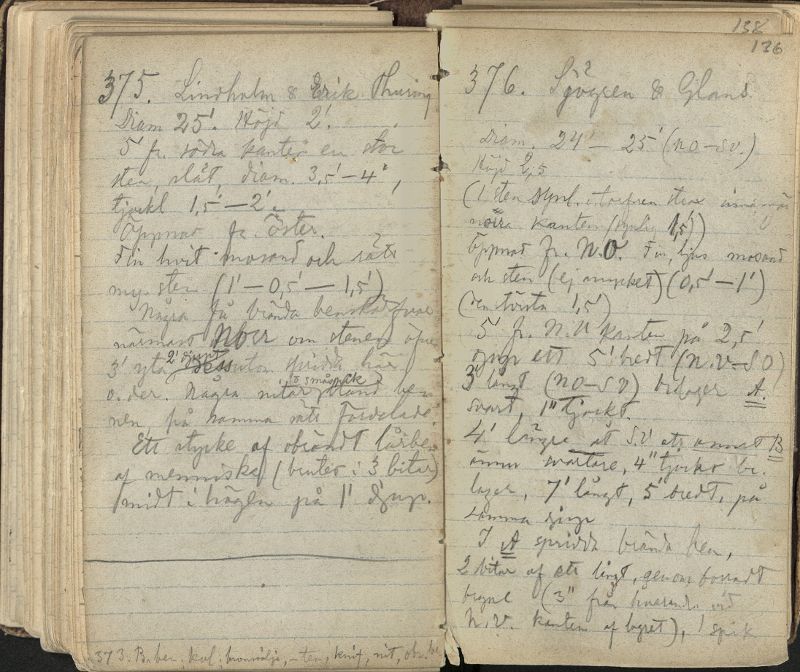 375. Lindholm & Erik Thuring
Diam 25'. Höjd 2'.
5' fr. södra kanten en stor
sten, slät, diam. 3,5'–4',
tjockl 1,5'–2'.
Öppnad fr. öster.
Fin hvit mosand och rätt
my. sten (1'–0,5'–1,5')
Några få brända benskärfvor
närmast NO om stenen öfver
3' yta 2' djupt spridda här
o. der. Några nitar o småspik bland be-
nen, på samma sätt fördelade.
Ett stycke af obrändt lårben
af menniska (brutet i 3 bitar)
midt i högen på 1' djup.
373. B. ben, kol, bronsnål, ten, knif, nit,
138
136
376. Sjögren & Glans.
Diam. 24'–25' (NO–SV.)
Höjd 2,5
(1 sten synl. i torfven
norra kanten 1,5')
Öppnad fr. N.O. Fin, ljus mosand
och sten (ej mycket) (0,5'–1')
(den största 1,5')
5' fr. N.V kanten på 2,5'
djup ett 5' bredt (N.V–SO)
3' långt (NO–SV) benlager A.
svart, 1" tjockt.
4' längre åt S.V ett annat B
ännu svartare, 4" tjockt be-
lager, 7' långt, 5' bredt, på
samma djup
I A spridda brända ben,
2 bitar af ett långt, genomborradt
bryne (3" från hvarandra vid
N.V. kanten af lagret), 1 spik